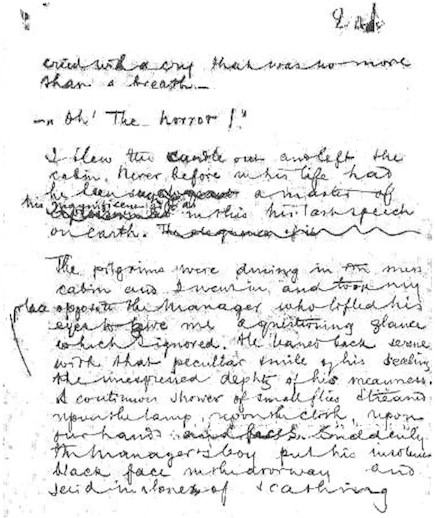 cried with a cry that was no more
than a breath —
"Oh! The horror!"
I blew the candle out and left the
cabin. Never before in his life had
he been a master of
his magnificent
in this his last speech
on earth. The eloquence of his
The pilgrims were dining in the mess
cabin and I went in and took my
place
opposite the manager who lifted his
eyes to give me a questioning glance
which I ignored. He leaned back serene
with that peculiar smile of his sealing
the unexpressed depths of his meanness.
A continuous shower of small flies streamed
upon the lamp, upon the cloth, upon
our hands and faces. Suddenly
the manager's boy put his insolent
black face in the doorway and
said in tones of scathing